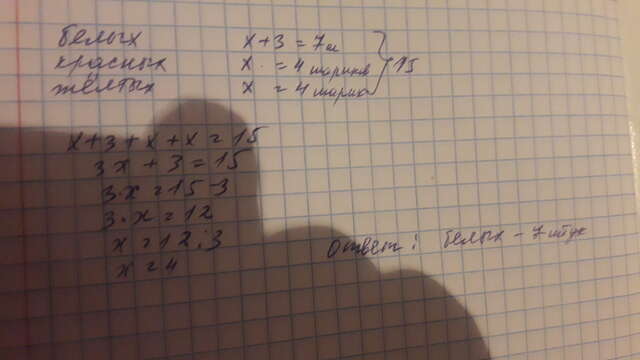 белых x+3=7ш
красных x =4 шариков } 15
жёлтых x =4 шарика
x+3+x+x=15
3x+3=15
3·x=15-3
3·x=12
x=12:3
x=4
ответ: белых - 7 штук